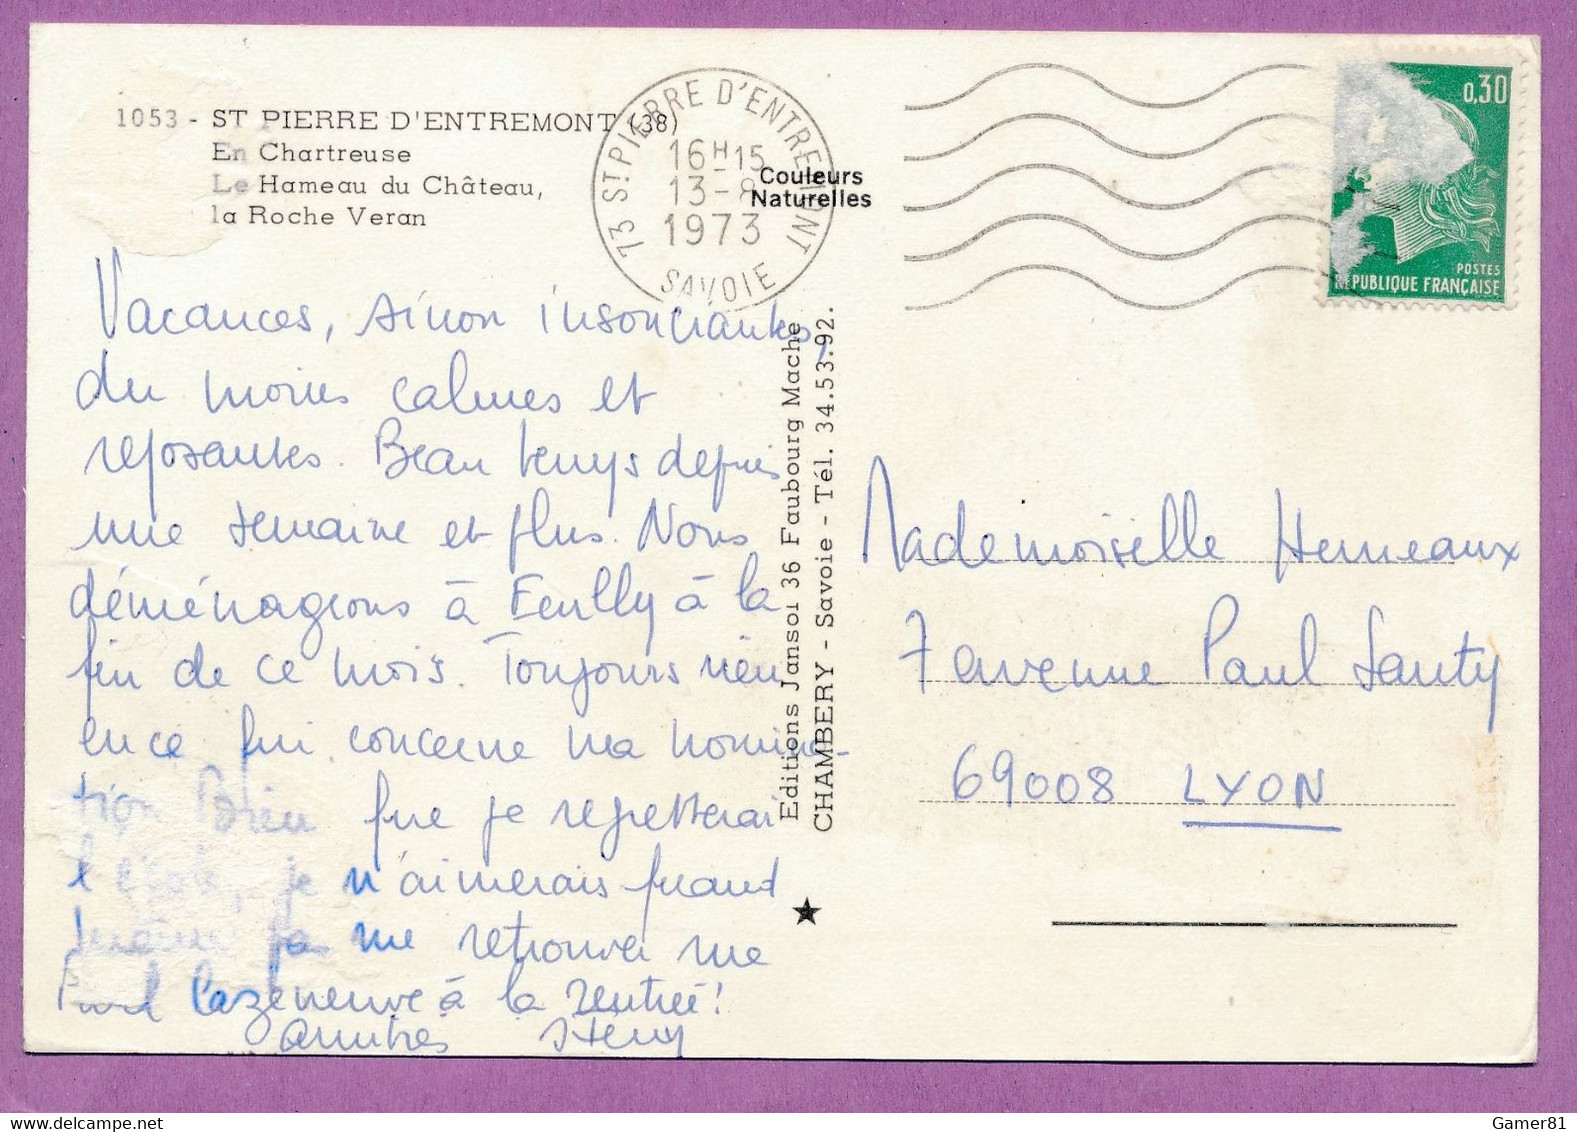 1053 - ST PIERRE D'ENTREMONT (38)
En Chartreuse
Le Hameau du Château,
la Roche Veran
73 ST PIERRE D'ENTREMONT
16H15
13-8
1973
SAVOIE
Couleurs
Naturelles
0,30
POSTES
RÉPUBLIQUE FRANÇAISE
Vacances, sinon insouciantes,
du moins calmes et
reposantes. Beau temps depuis
une semaine et plus. Nous
déménageons à Ecully à la
fin de ce mois. Toujours rien
en ce qui concerne ma nomina-
tion Bien que je regretterai
l'école, je n'aimerais quand
même pas me retrouver rue
Paul Cazeneuve à la rentrée!
amitiés
Editions Jansol 36 Faubourg Mache
CHAMBERY - Savoie - Tél. 34.53.92.
Mademoiselle Hermeaux
7 avenue Paul Santy
69008 LYON
Gamer81